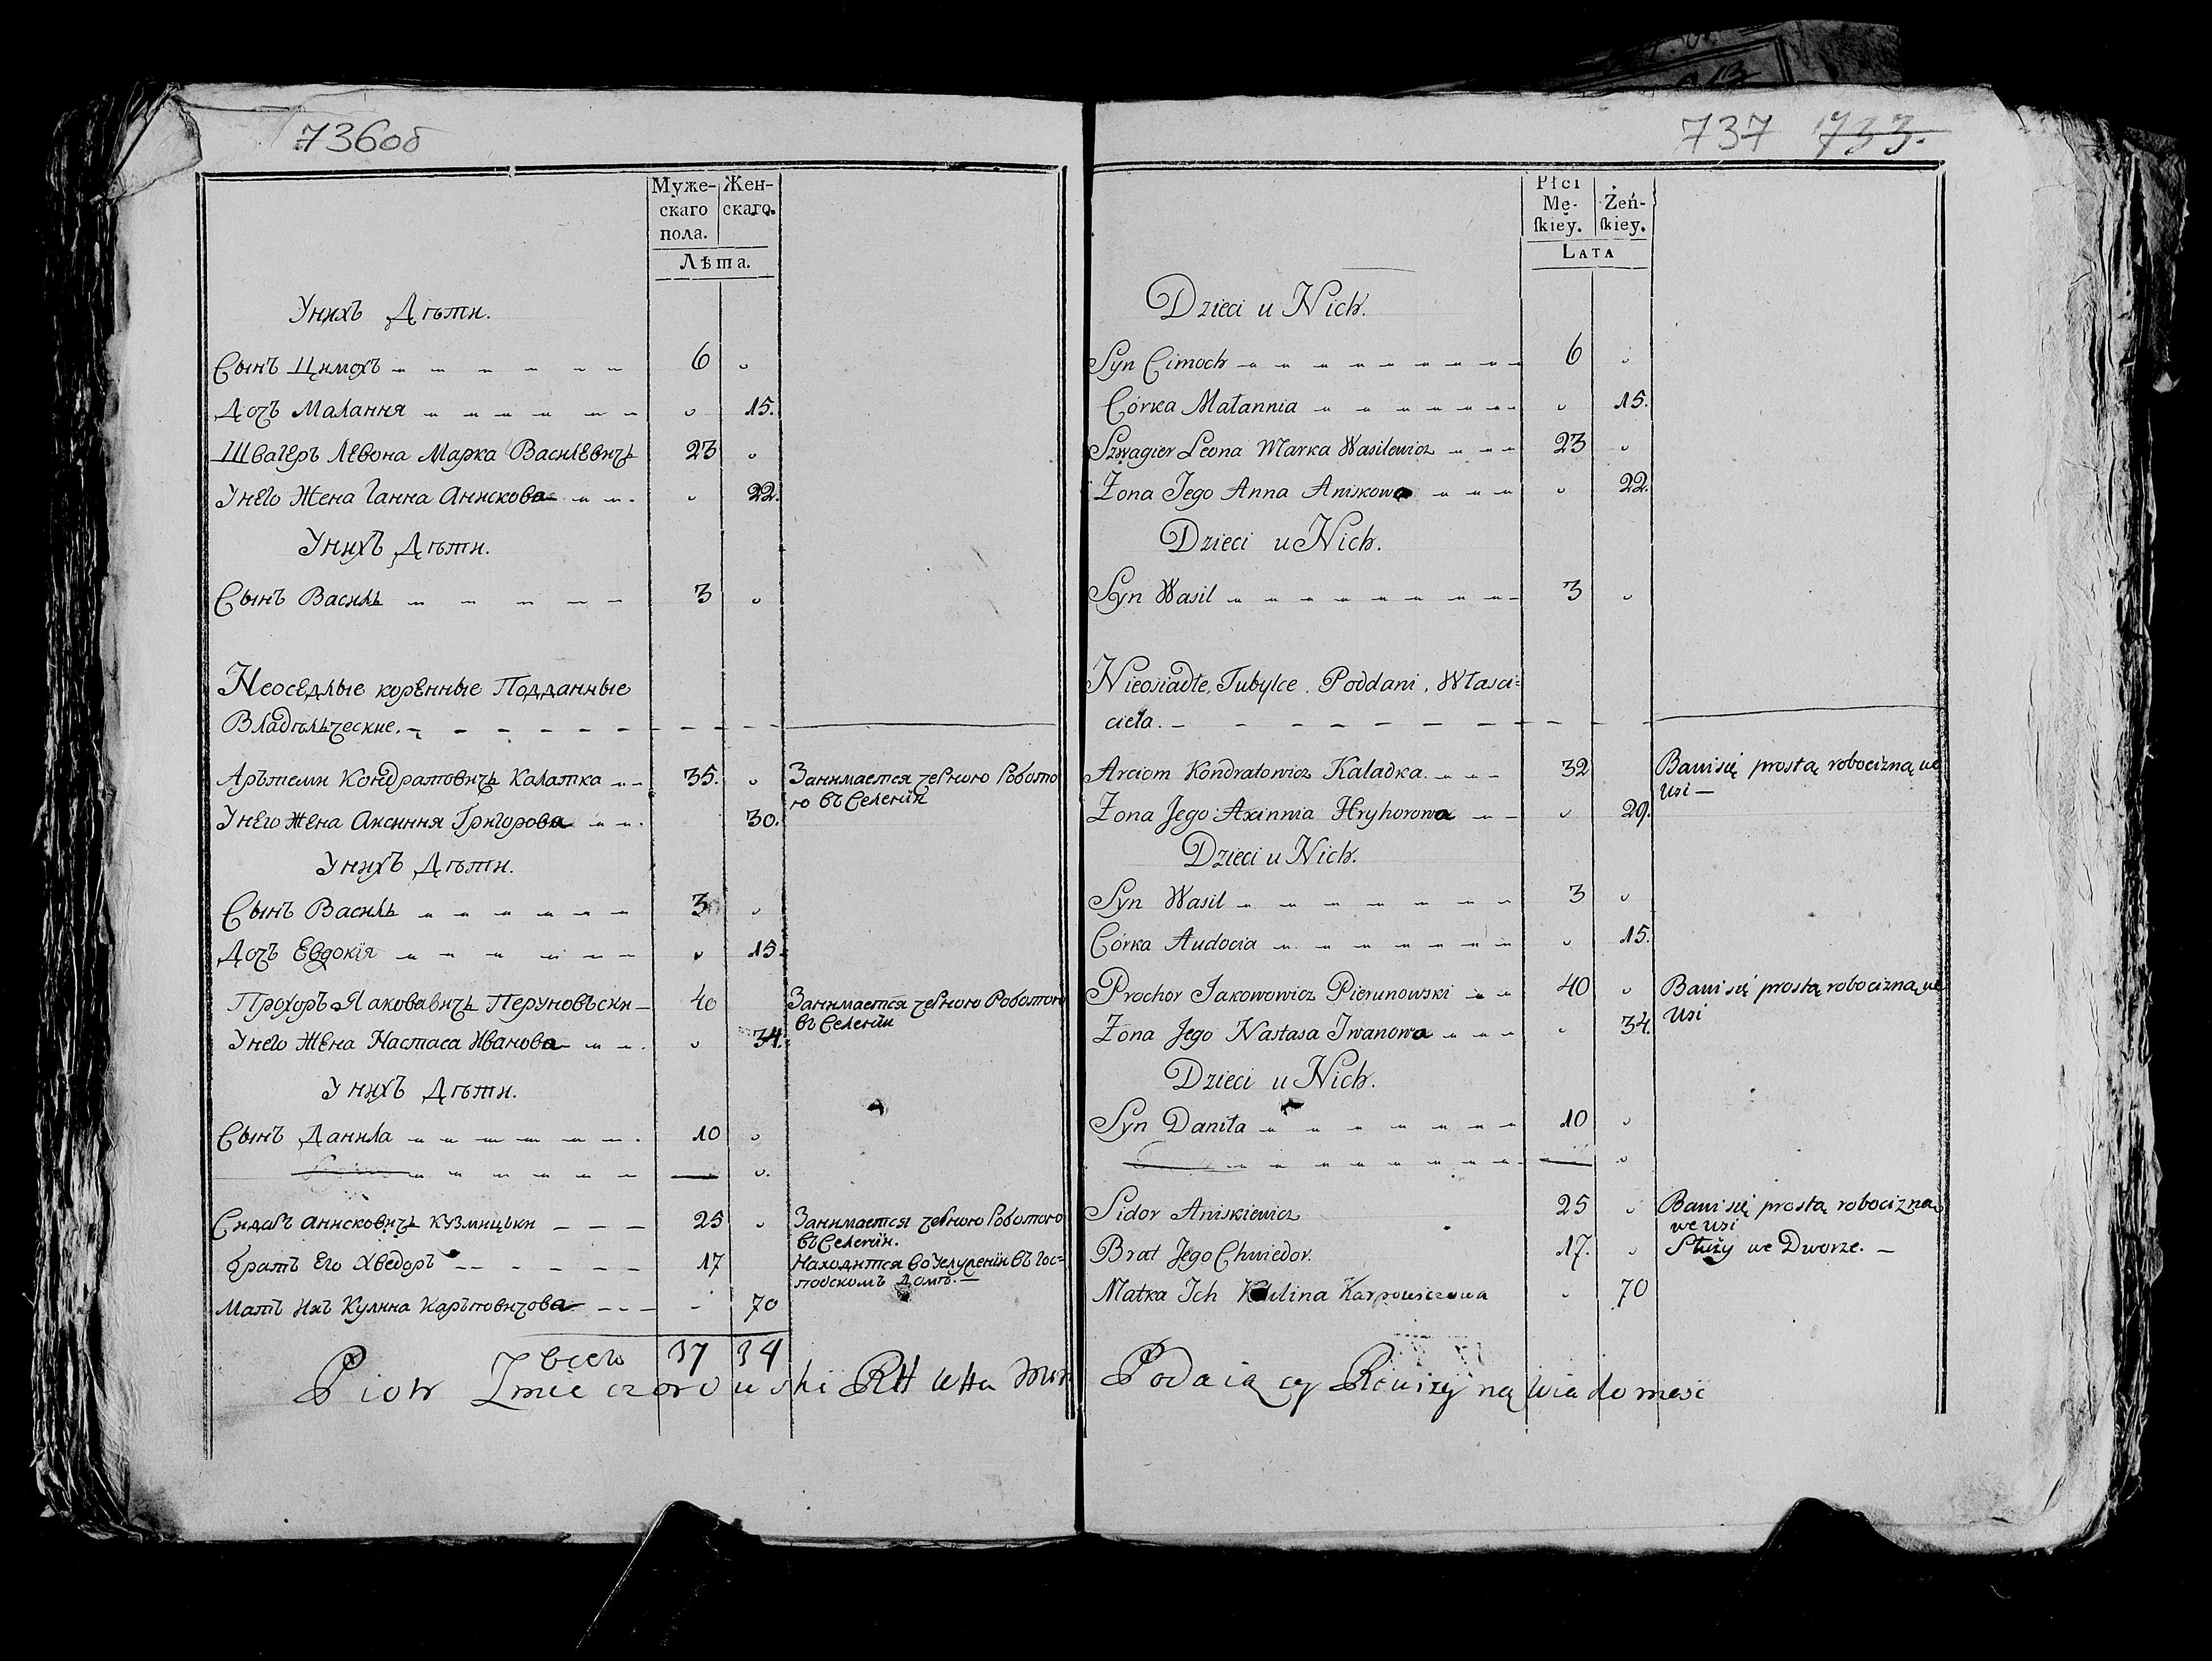 736об
Муже- Жен-
скаго скаго.
пола.
Лѣта.
Унихъ Дѣти.
Сынъ Цимохъ 6
Дочъ Малання 15.
Швагеръ Левона Марка Василевичь 23
Унего Жена Ганна Анискова 22.
Унихъ Дѣти.
Сынъ Василь 3
Неоседлые коренные Подданные
Владѣльческие.
Арътеми Кондратовичь Калатка 35. Занимается черною Робото
ю въ Селенїи
Унего Жена Аксиння Григорова 30.
Унихъ Дѣти.
Сынъ Василь 3
Дочъ Евдокїя 15.
Прохоръ Яаковавичь Перуновъски 40 Занимается черною Роботою
въ Селенїи
Унего Жена Настаса Иванова 34.
Унихъ Дѣти.
Сынъ Данила 10
Сидаръ Анисковичь Кузмицьки 25 Занимается черною Роботою
въ Селенїи.
братъ Его Хведоръ 17 Находится во Услуренїи въ Гос=
подскомъ Домѣ.
Матъ Ихъ Кулина Каръповичова 70
всего 37 34
Piotr
737 733.
Płci
Mę- Żeń-
skiey. skiey.
LATA
Dzieci u Nich.
Syn Cimoch 6
Córka Małannia 15.
Szwagier Leona Marka Wasilewicz 23
Żona Jego Anna Aniskowa 22.
Dzieci u Nich.
Syn Wasil 3
Nieosiadłe, Tubylce, Poddani, Własci=
ciela.
Arciom Kondratowicz Kaladka 32 Bawi się prostą robocizną we
wsi
Żona Jego Axinnia Hryhorowa 29.
Dzieci u Nich.
Syn Wasil 3
Córka Audocia 15.
Prochor Jakowowicz Pierunowski 40 Bawi się prostą robocizną we
wsi
Żona Jego Nastasa Iwanowa 34.
Dzieci u Nich.
Syn Daniła 10
Sidor Aniskiewicz 25 Bawi się prostą robocizną
we wsi
Brat Jego Chwiedor. 17. Służy we Dworze.
Matka Ich Kulina Karpowiczowa 70
Podaiący Rewizyi na wiadomosc